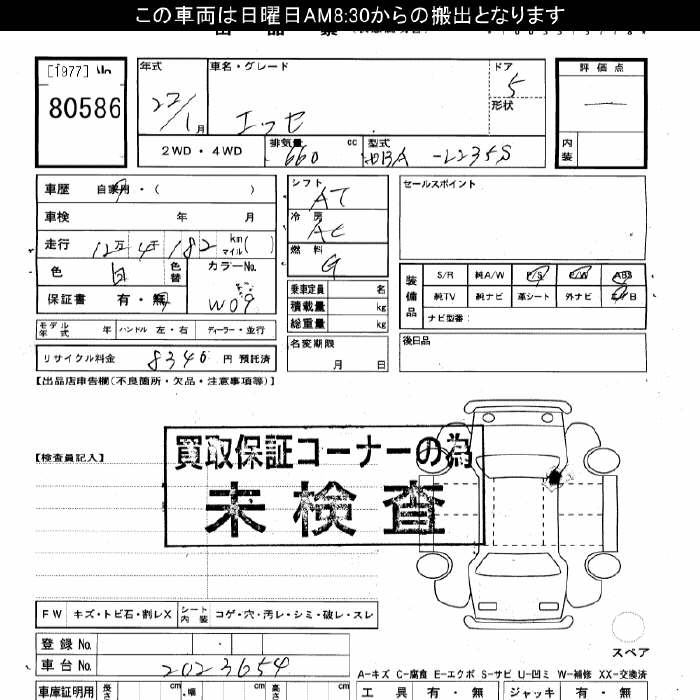 この車両は日曜日AM8:30からの搬出となります
[1977]
80586
年式
22/1月
車名・グレード
エッセ
ドア
5
形状
評価点
―
内装
2WD・4WD
排気量
660 cc
型式
DBA-L235S
車歴 自家用・( )
車検 年 月
走行 12万4千182 km マイル( )
色 白 色替
カラーNo.
W09
保証書 有・無
シフト
AT
冷房
AC
燃料
G
乗車定員 名
積載量 kg
総重量 kg
セールスポイント
装備品
S/R 純A/W P/S P/W ABS
純TV 純ナビ 革シート 外ナビ エアB
ナビ型番:
モデル年式 年 ハンドル 左・右 ディーラー・並行
名変期限
月 日
後日品
リサイクル料金 8340 円 預託済
【出品店申告欄(不良箇所・欠品・注意事項等)】
【検査員記入】
買取保証コーナーの為
未検査
FW キズ・トビ石・割レX シート内装 コゲ・穴・汚レ・シミ・破レ・スレ
登録No.
車台No. 2023654
スペア
A-キズ C-腐食 E-エクボ S-サビ U-凹ミ W-補修 XX-交換済
車庫証明用 長さ cm 幅 cm 高さ cm
工具 有・無 ジャッキ 有・無